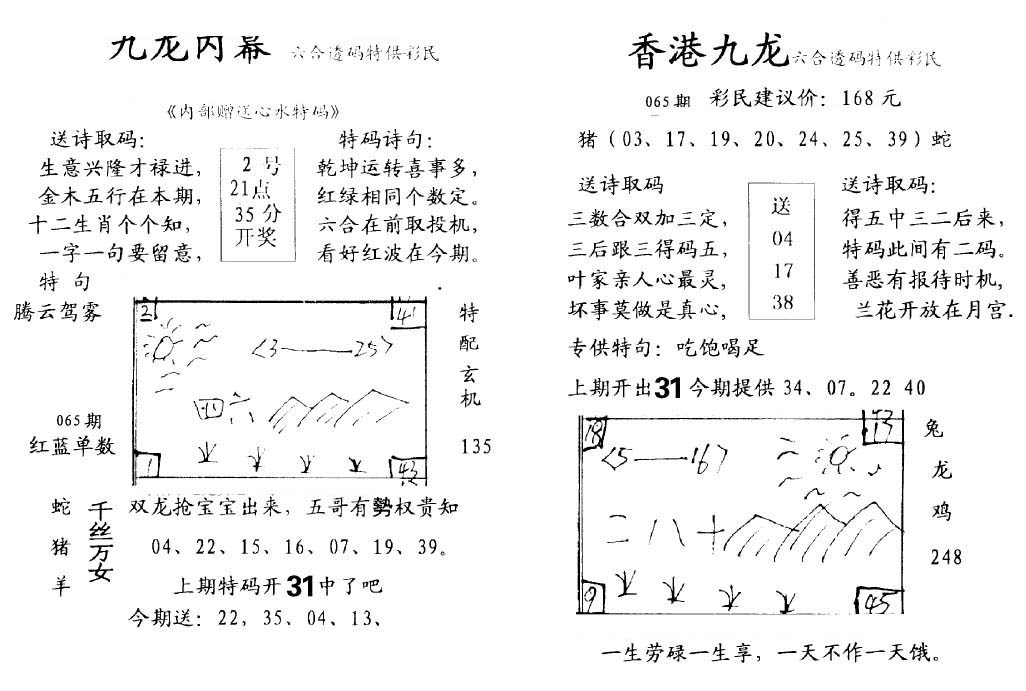 九龙内幕 六合透码特供彩民
《内部赠送心水特码》
送诗取码：
生意兴隆才禄进，
金木五行在本期，
十二生肖个个知，
一字一句要留意，
2 号
21点
35 分
开奖
特码诗句：
乾坤运转喜事多，
红绿相同个数定。
六合在前取投机，
看好红波在今期。
特 句
腾云驾雾
065 期
红蓝单数
2
41
<3——25>
四六
1
43
特
配
玄
机
135
蛇
猪
羊
千丝万女
双龙抢宝宝出来，五哥有勢权贵知
04、22、15、16、07、19、39。
上期特码开31中了吧
今期送：22，35、04、13、
香港九龙 六合透码特供彩民
065 期 彩民建议价：168 元
猪（03、17、19、20、24、25、39）蛇
送诗取码
三数合双加三定，
三后跟三得码五，
叶家亲人心最灵，
坏事莫做是真心，
送
04
17
38
送诗取码：
得五中三二后来，
特码此间有二码。
善恶有报待时机，
兰花开放在月宫．
专供特句：吃饱喝足
上期开出31今期提供 34、07。22 40
18
<5——16>
二八十
9
45
兔
龙
鸡
248
一生劳碌一生享，一天不作一天饿。